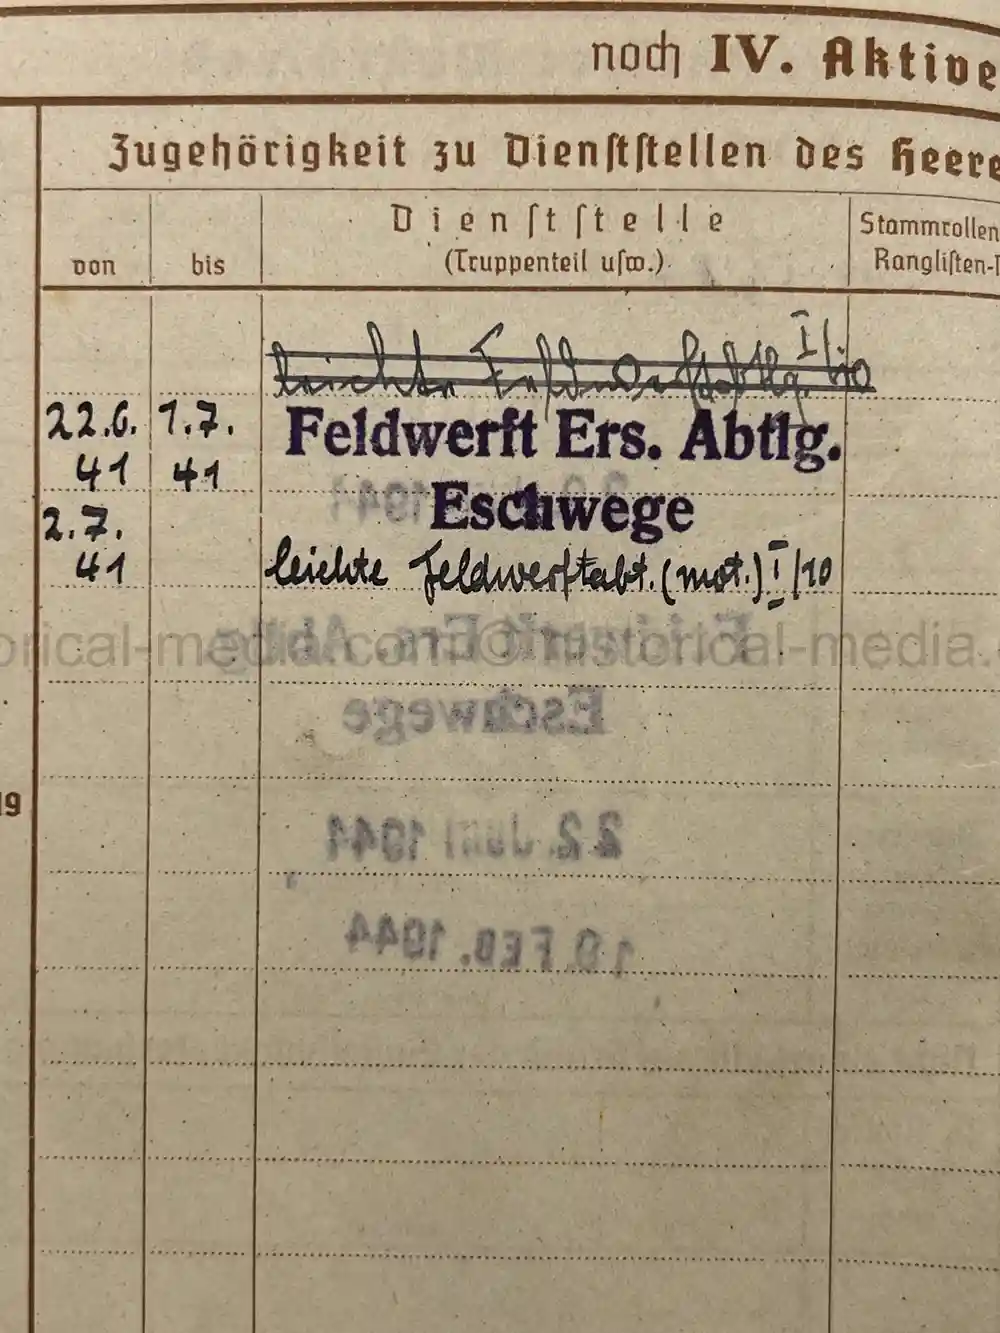 noch IV. Aktive
Zugehörigkeit zu Dienststellen des Heere
von
bis
Dienststelle
(Truppenteil usw.)
Stammrollen
Ranglisten-
leichte Feldwerftabtlg. I/10
22.6.
41
1.7.
41
Feldwerft Ers. Abtlg.
Eschwege
2.7.
41
leichte Feldwerftabt. (mot.) I/10
orical-media.com©historical-media.
Feldwerft Ers. Abtlg.
Eschwege
19
22. JUNI 1941
19. FEB. 1944